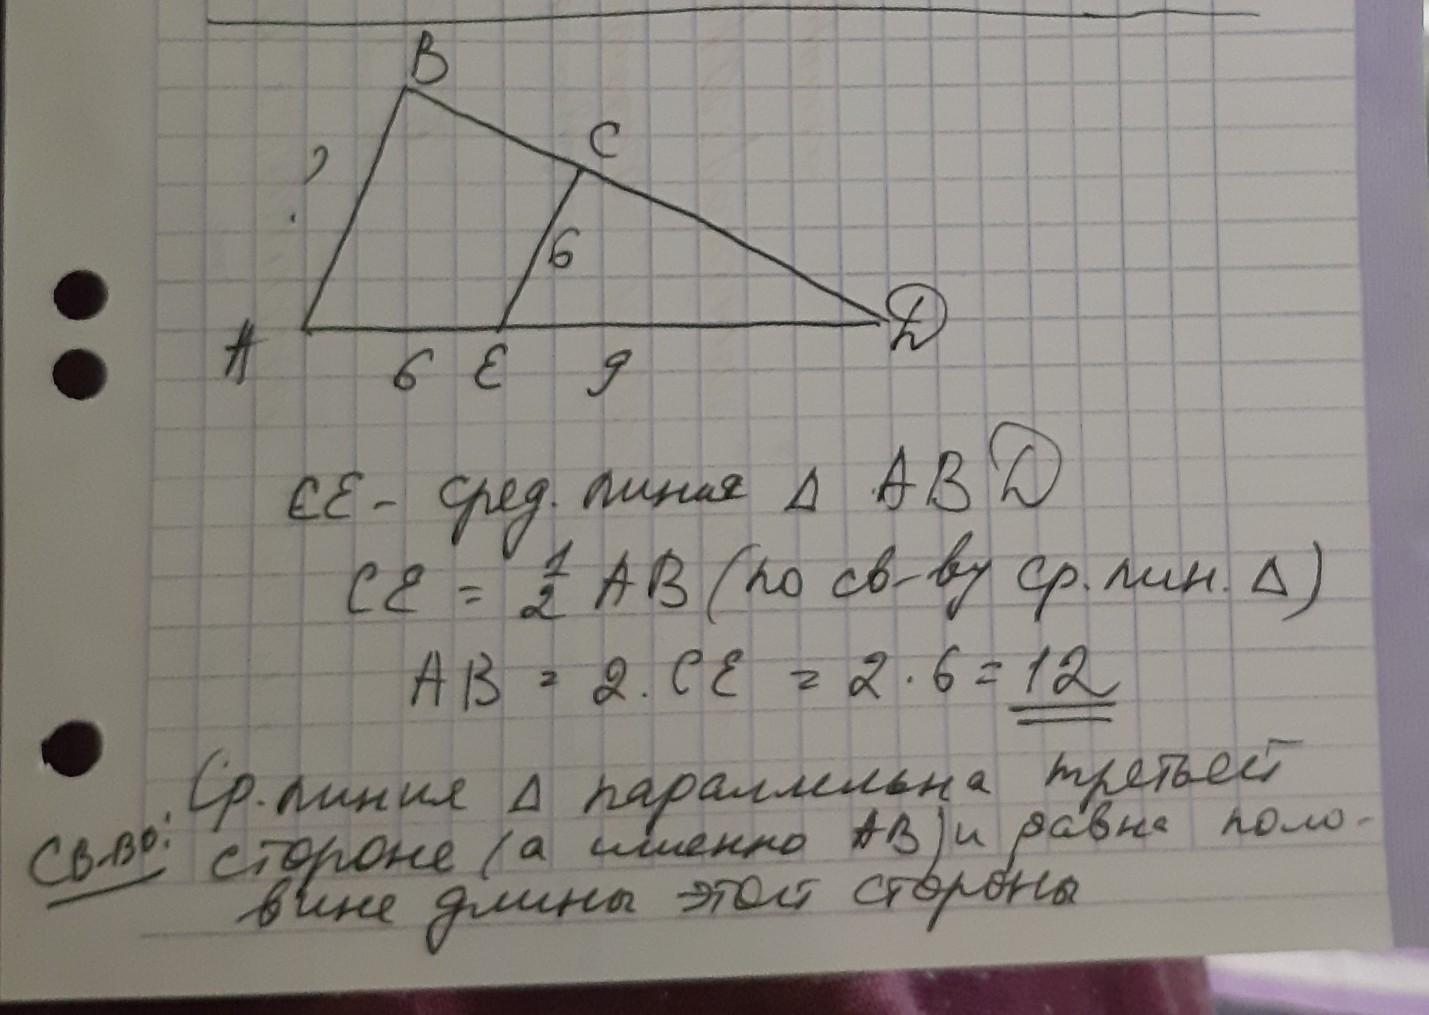 B
C
?
6
A
6 E 9
D
CE - сред. линия Δ ABD
CE = 1/2 AB (по св-ву ср. лин. Δ)
AB = 2 · CE = 2 · 6 = 12
Ср. линия Δ параллельна третьей
Св-во: стороне (а именно AB) и равна поло-
вине длины этой стороны